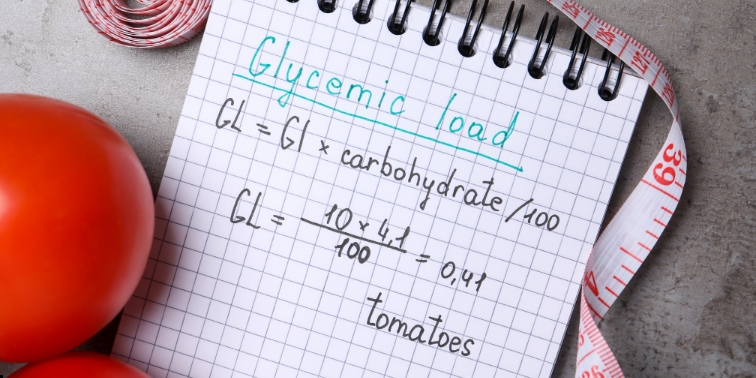 Glycemic load
GL = GI × carbohydrate/100
GL = 10 × 4,1 / 100 = 0,41
tomatoes
39
4